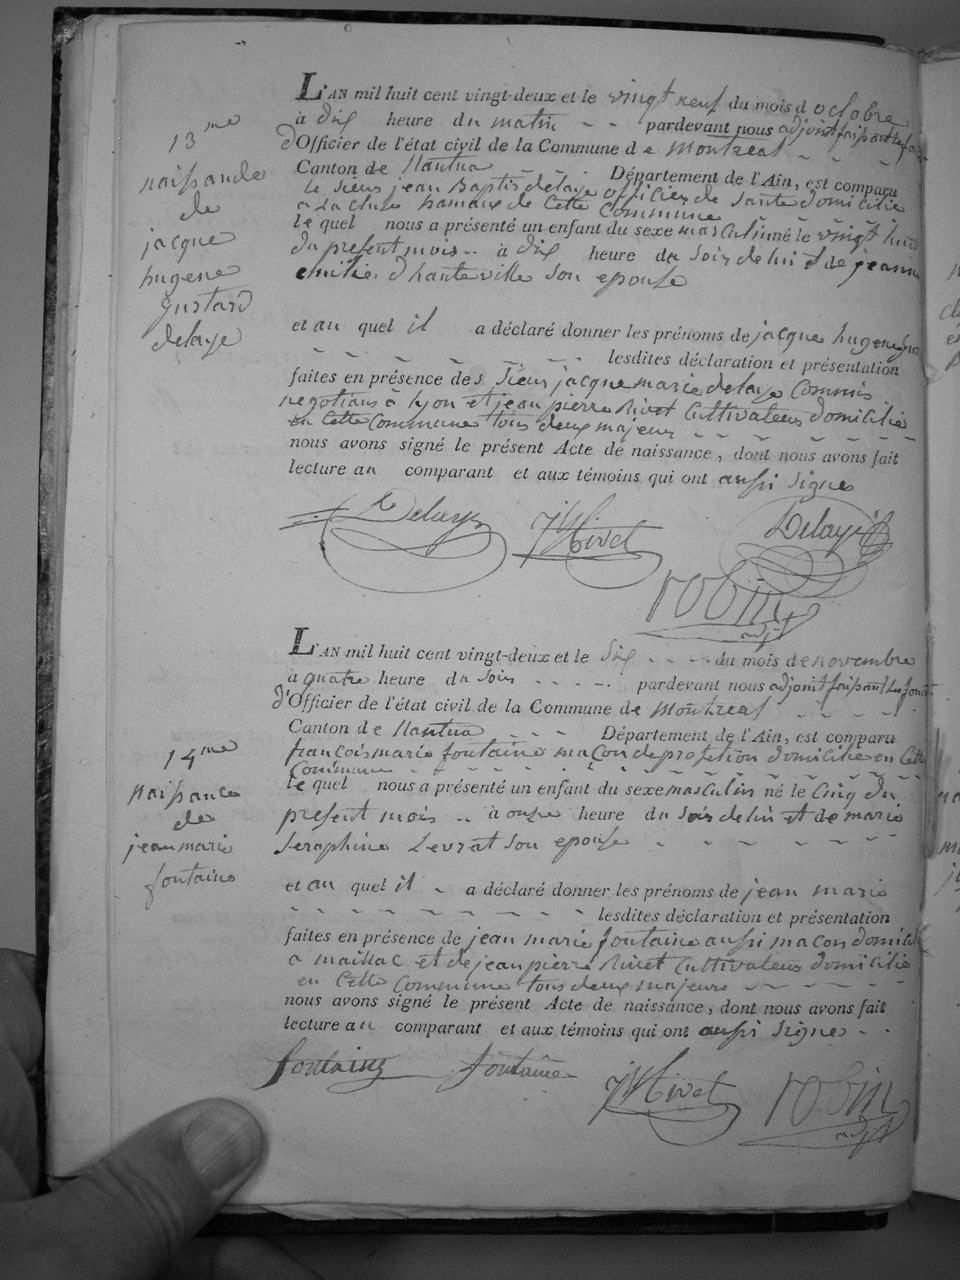 13me
naissande
de
jacque
hugene
gustard
delaye
L'AN mil huit cent vingt-deux et le vingt neuf du mois d octobre
à dix heure du matin pardevant nous adjoint faisant les
d'Officier de l'état civil de la Commune de Montreal
Canton de Nantua Département de l'Ain, est comparu
le sieur jean Baptiste delaye officier de sante domicilié
a La cluse hamaux de cette Commune
le quel nous a présenté un enfant du sexe masculin né le vingt huit
du present mois à dix heure du soir de lui et de jeanne
emilie d'hauteville son epouse
et au quel il a déclaré donner les prénoms de jacque hugene
lesdites déclaration et présentation
faites en présence des sieur jacque marie delaye Commis
negotians à Lyon et jean pierre Rivet Cultivateur domicilié
en Cette Commune tous deux majeurs
nous avons signé le présent Acte de naissance, dont nous avons fait
lecture au comparant et aux témoins qui ont aussi signe
Delaye JP Rivet Delaye
robin
adjt
14me
naissance
de
jean marie
fontaine
L'AN mil huit cent vingt-deux et le dix du mois de novembre
à quatre heure du soir pardevant nous adjoint faisant les fonct
d'Officier de l'état civil de la Commune de Montreal
Canton de Nantua Département de l'Ain, est comparu
francois marie fontaine macon de profetion domicilié en Cette
Commune
le quel nous a présenté un enfant du sexe masculin né le Cinq du
present mois à onse heure du soir de lui et de marie
Seraphine Levrat son epouse
et au quel il a déclaré donner les prénoms de jean marie
lesdites déclaration et présentation
faites en présence de jean marie fontaine aussi macon domicilié
a maillac et de jean pierre Rivet Cultivateur domicilié
en Cette Commune tous deux majeurs
nous avons signé le présent Acte de naissance, dont nous avons fait
lecture au comparant et aux témoins qui ont aussi signe
fontaine fontaine JP Rivet robin
adjt